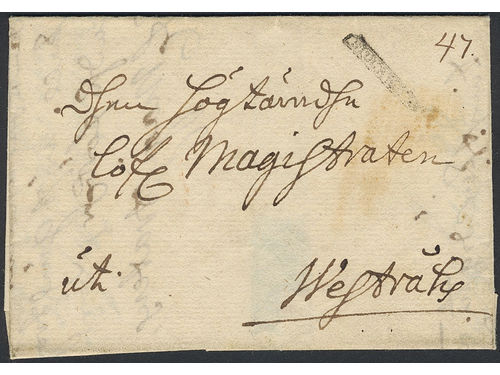 47.
Dhen Högtärndhe
Lofl. Magistraten
uti
Westeråhs